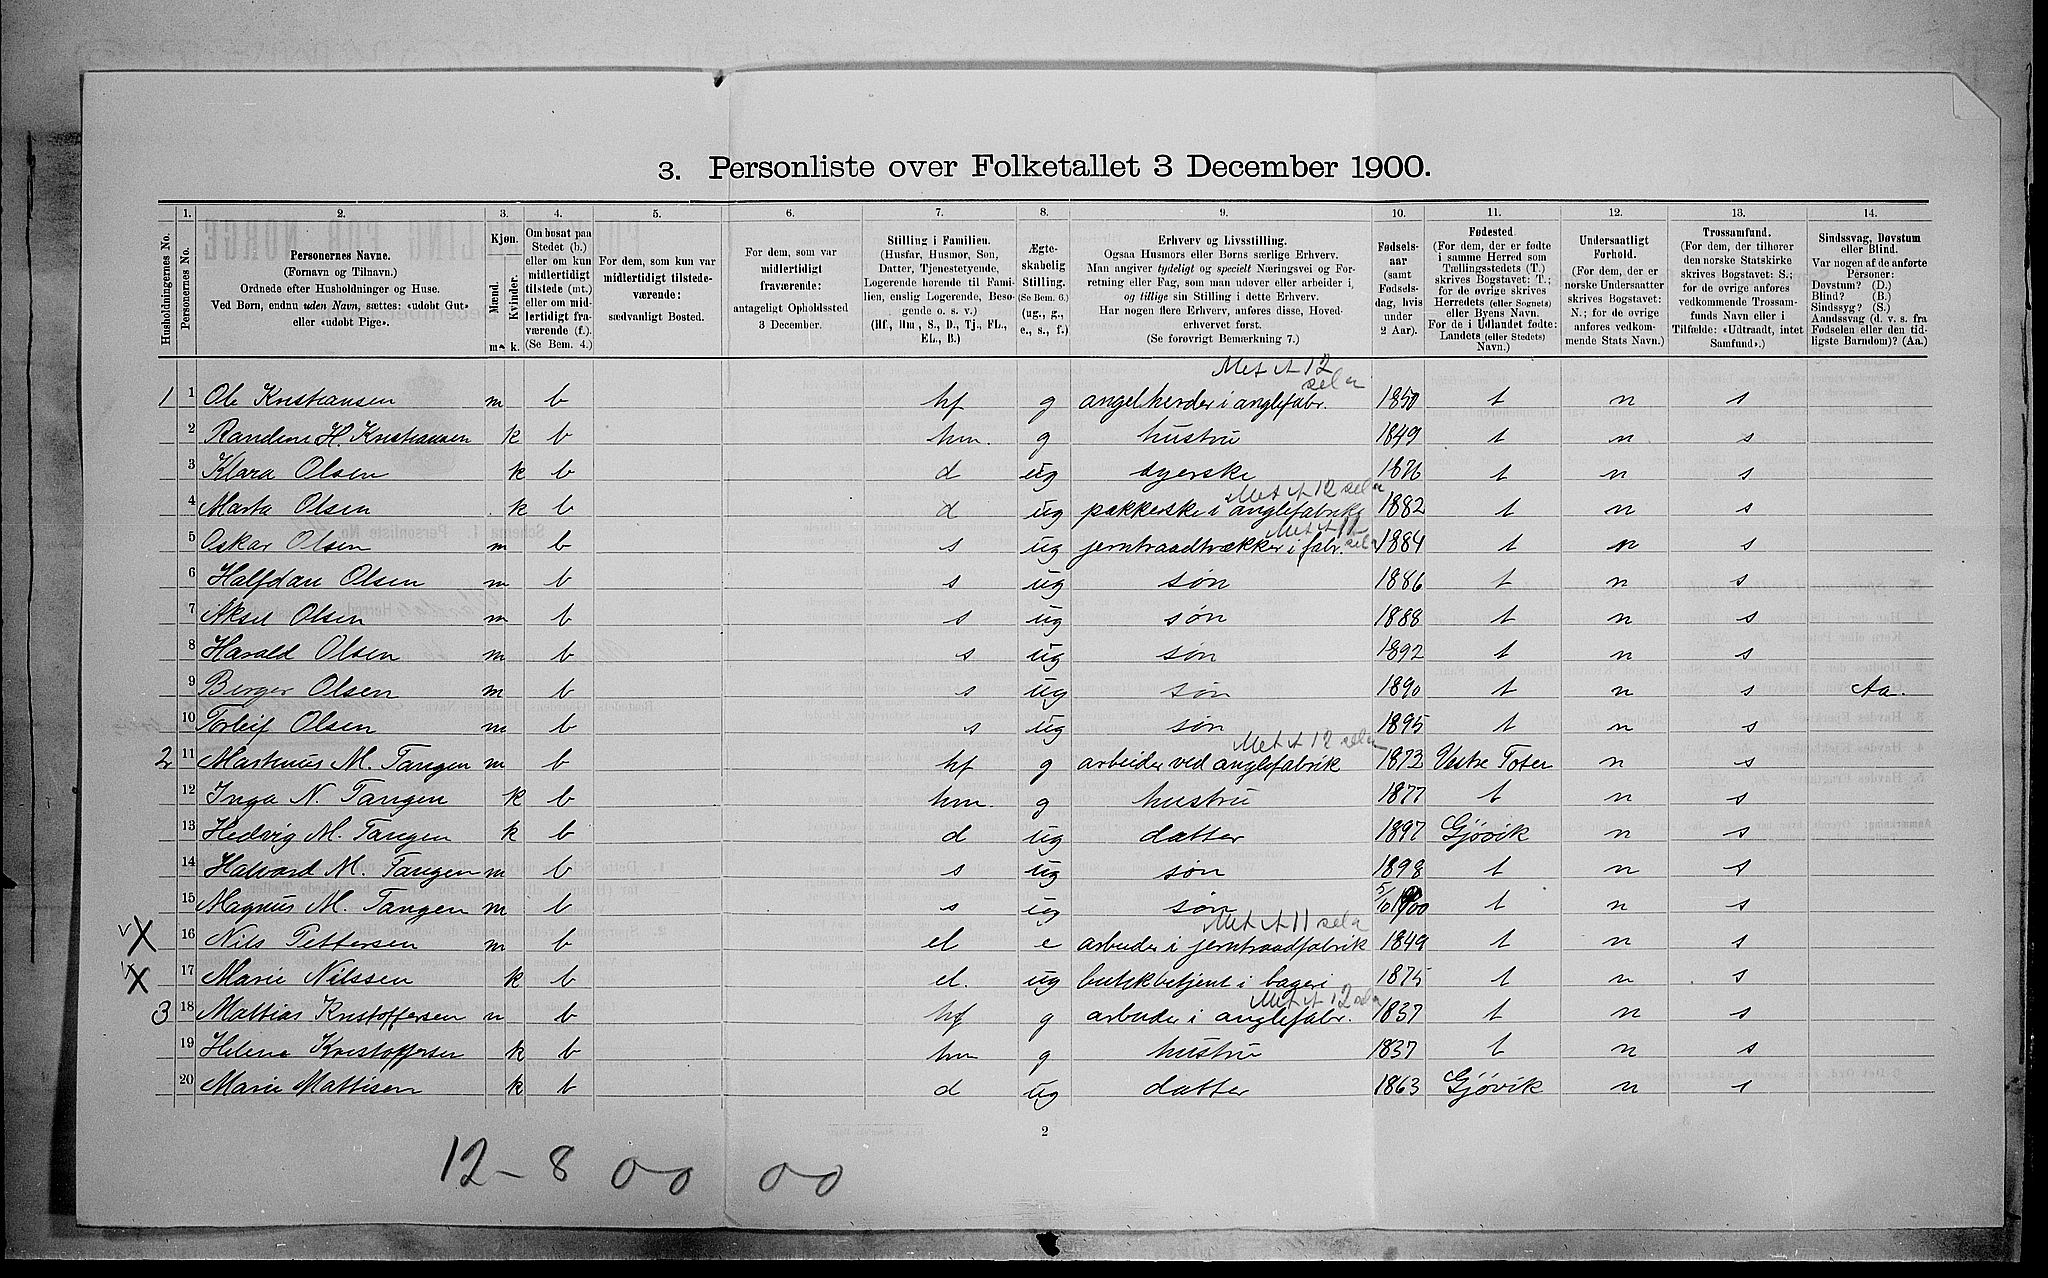 3. Personliste over Folketallet 3 December 1900.
Husholdningernes No.
1. Personernes No.
2. Personernes Navne. (Fornavn og Tilnavn.) Ordnede efter Husholdninger og Huse. Ved Børn, endnu uden Navn, sættes: «udobt Gut» eller «udobt Pige».
3. Kjøn. Mænd. Kvinder. m. k.
4. Om bosat paa Stedet (b.) eller om kun midlertidigt tilstede (mt.) eller om midlertidigt fraværende (f.). (Se Bem. 4.)
5. For dem, som kun var midlertidigt tilstedeværende: sædvanligt Bosted.
6. For dem, som var midlertidigt fraværende: antageligt Opholdssted 3 December.
7. Stilling i Familien. (Husfar, Husmor, Søn, Datter, Tjenestetyende, Logerende hørende til Familien, enslig Logerende, Besøgende o. s. v.) (Hf., Hm., S., D., Tj., FL., EL., B.)
8. Ægteskabelig Stilling. (Se Bem. 6.) (ug., g., e., s., f.)
9. Erhverv og Livsstilling. Ogsaa Husmors eller Børns særlige Erhverv. Man angiver tydeligt og specielt Næringsvei og Forretning eller Fag, som man udøver eller arbeider i, og tillige sin Stilling i dette Erhverv. Har nogen flere Erhverv, anføres disse, Hovederhvervet først. (Se forøvrigt Bemærkning 7.)
10. Fødselsaar (samt Fødselsdag, hvis under 2 Aar).
11. Fødested. (For dem, der er fødte i samme Herred som Tællingsstedets (T.) skrives Bogstavet: T.; for de øvrige skrives Herredets (eller Sognets) eller Byens Navn. For de i Udlandet fødte: Landets (eller Stedets) Navn.)
12. Undersaatligt Forhold. (For dem, der er norske Undersaatter skrives Bogstavet: N.; for de øvrige anføres vedkommende Stats Navn.)
13. Trossamfund. (For dem, der tilhører den norske Statskirke skrives Bogstavet: S.; for de øvrige anføres vedkommende Trossamfunds Navn eller i Tilfælde: «Udtraadt, intet Samfund».)
14. Sindssvag, Døvstum eller Blind. Var nogen af de anførte Personer: Døvstum? (D.) Blind? (B.) Sindssyg? (S.) Aandssvag (d. v. s. fra Fødselen eller den tidligste Barndom)? (Aa.)
Met et 12
1 1 Ole Kristiansen m b hf g angelherder i anglefabr. 1850 t n s
2 Randine H. Kristiansen k b hm. g hustru 1849 t n s
3 Klara Olsen k b d ug syerske 1876 t n s
Met et 12
4 Marta Olsen k b d ug pakkerske i anglefabrik 1882 t n s
Met et 11
5 Oskar Olsen m b s ug jerntraadtrækker i fabr. 1884 t n s
6 Halfdan Olsen m b s ug søn 1886 t n s
7 Aksel Olsen m b s ug søn 1888 t n s
8 Harald Olsen m b s ug søn 1892 t n s
9 Birger Olsen m b s ug søn 1890 t n s Aa.
10 Torleif Olsen m b s ug søn 1895 t n s
Met et 12
2 11 Martinus M. Tangen m b hf g arbeider ved anglefabrik 1873 Vestre Toten n s
12 Inga N. Tangen k b hm. g hustru 1877 t n s
13 Hedvig M. Tangen k b d ug datter 1897 Gjøvik n s
14 Halvard M. Tangen m b s ug søn 1898 t n s
15 Magnus M. Tangen m b s ug søn 5/10 1900 t n s
Met et 11
X 16 Nils Pettersen m b el e arbeider i jerntraadfabrik 1849 t n s
X 17 Marie Nilssen k b el. ug butikbetjent i bageri 1875 t n s
Met et 12
3 18 Mattias Kristoffersen m b hf g arbeider i anglefabr. 1837 t n s
19 Helene Kristoffersen k b hm g hustru 1837 t n s
20 Marie Mattisen k b d ug datter 1863 Gjøvik n s
2
12 - 8 0 0 0 0